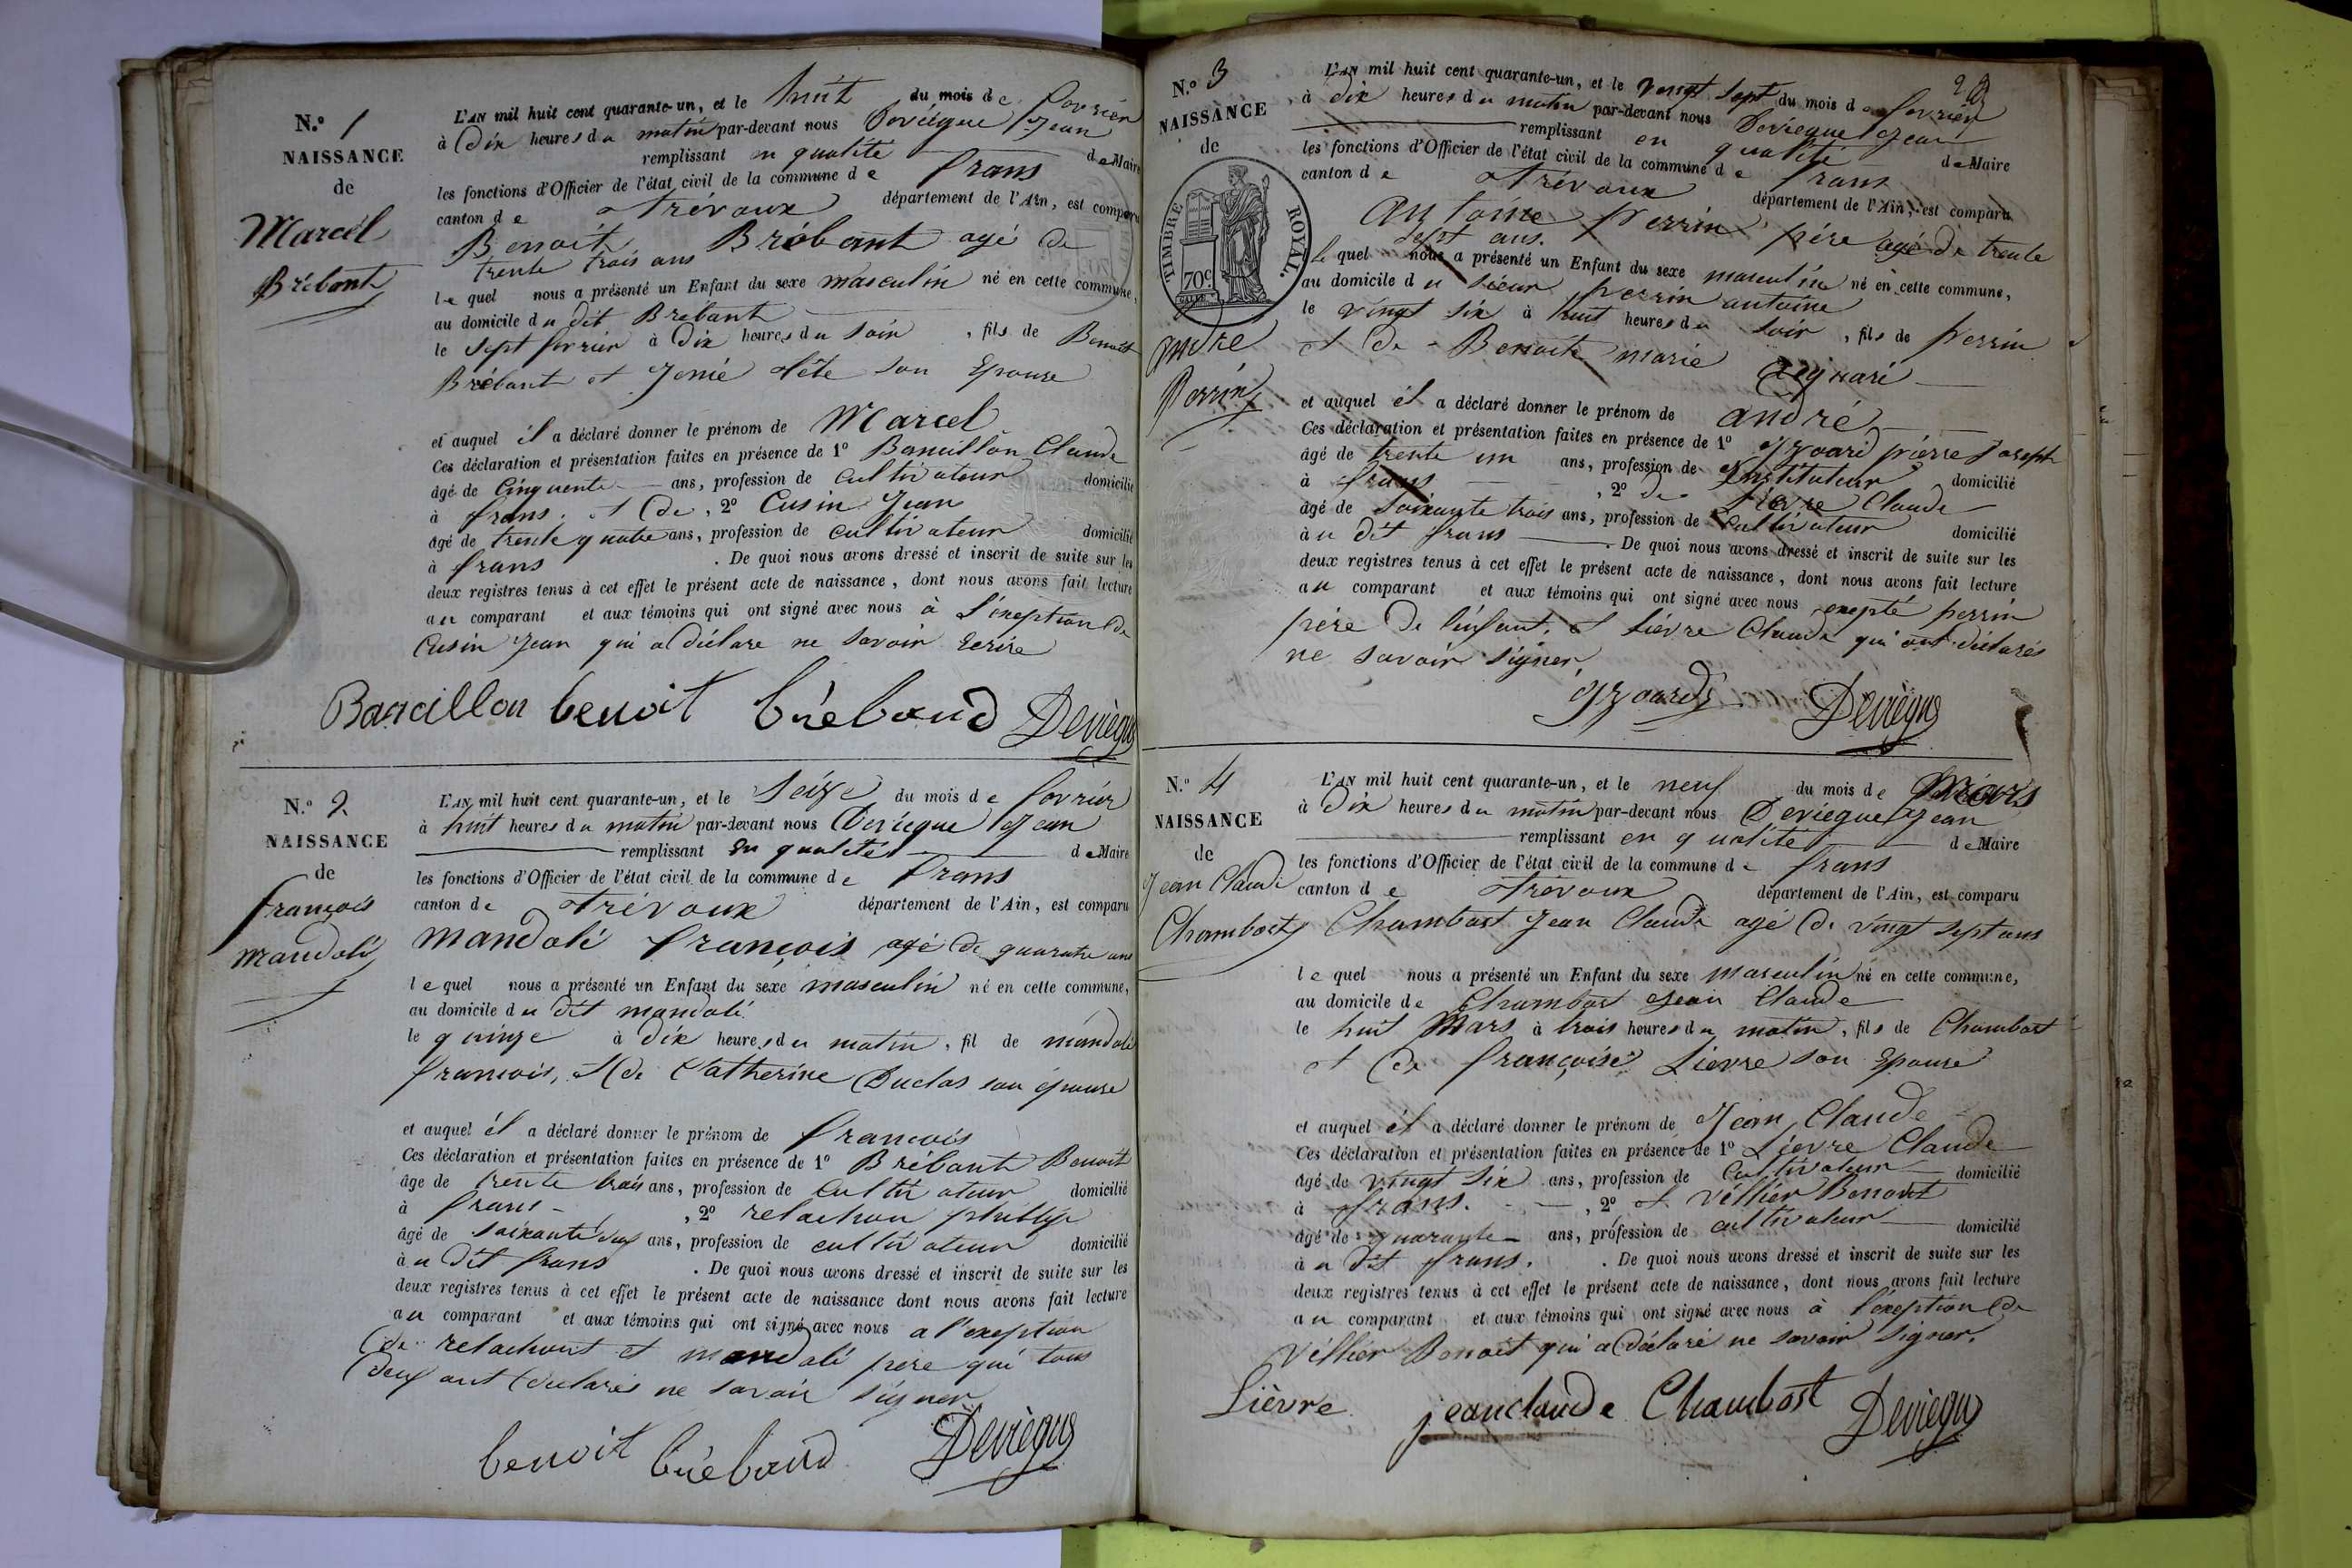 N.º 1
NAISSANCE
de
Marcel
Brébant
L'AN mil huit cent quarante-un, et le huit du mois de fevrier
à Dix heures du matin par-devant nous Deviegue Jean
remplissant en qualité de Maire
les fonctions d'Officier de l'état civil de la commune de frans
canton de Trévoux département de l'Ain, est comparu
Benoît Brébant agé de
trente trois ans
le quel nous a présenté un Enfant du sexe masculin né en cette commune,
au domicile du dit Brébant
le sept fevrier à Dix heures du soir, fils de Benoît
Brébant et son Epouse
et auquel il a déclaré donner le prénom de Marcel
Ces déclaration et présentation faites en présence de 1º Bancillon Claude
âgé de Cinquente ans, profession de cultivateur domicilié
à frans. et de, 2º Cusin Jean
âgé de trente quatre ans, profession de cultivateur domicilié
à frans. De quoi nous avons dressé et inscrit de suite sur les
deux registres tenus à cet effet le présent acte de naissance, dont nous avons fait lecture
au comparant et aux témoins qui ont signé avec nous à l'exeption de
Cusin Jean qui a déclare ne savoir Ecrire
Bancillon benoit bréband Deviegue
N.º 2
NAISSANCE
de
françois
mandolé
L'AN mil huit cent quarante-un, et le Seize du mois de fevrier
à huit heures du matin par-devant nous Deviegue Jean
remplissant en qualité de Maire
les fonctions d'Officier de l'état civil de la commune de frans
canton de Trévoux département de l'Ain, est comparu
mandolé françois agé de quarante ans
le quel nous a présenté un Enfant du sexe masculin né en cette commune,
au domicile du dit mandolé
le quinze à dix heures du matin, fil de mandolé
francois, et de Catherine Duclos son épouse
et auquel il a déclaré donner le prénom de francois
Ces déclaration et présentation faites en présence de 1º Brébant Benoit
âge de trente trois ans, profession de cultivateur domicilié
à frans, 2º relachon phillipe
âgé de soixante deux ans, profession de cultivateur domicilié
à u dit frans. De quoi nous avons dressé et inscrit de suite sur les
deux registres tenus à cet effet le présent acte de naissance dont nous avons fait lecture
au comparant et aux témoins qui ont signé avec nous a l'exeption
de relachont et mandolé pere qui tous
deux ont declarés ne savoir signer
benoit bréband Deviegue
23
N.º 3
NAISSANCE
de
TIMBRE ROYAL.
70c
andre
Perrin
L'AN mil huit cent quarante-un, et le vengt sept du mois de fevrier
à dix heures du matin par-devant nous Deviegue Jean
remplissant en qualité de Maire
les fonctions d'Officier de l'état civil de la commune de frans
canton de Trévoux département de l'Ain, est comparu
Antoine perrin père agé de trente
sept ans.
le quel nous a présenté un Enfant du sexe masculin né en cette commune,
au domicile du sieur perrin antoine
le vingt six à huit heures du soir, fils de perrin
et de Benoite marie
et auquel il a déclaré donner le prénom de andré
Ces déclaration et présentation faites en présence de 1º Izoard pierre Joseph
âgé de trente un ans, profession de Instituteur domicilié
à frans, 2º de Lièvre Claude
âgé de soixante trois ans, profession de cultivateur domicilié
à u dit frans. De quoi nous avons dressé et inscrit de suite sur les
deux registres tenus à cet effet le présent acte de naissance, dont nous avons fait lecture
au comparant et aux témoins qui ont signé avec nous exepté perrin
père de l'enfant. et Lièvre Claude qui ont déclarés
ne savoir signer,
Izoard Deviegue
N.º 4
NAISSANCE
de
Jean Claude
Chambost
L'AN mil huit cent quarante-un, et le neuf du mois de Mars
à dix heures du matin par-devant nous Deviegue Jean
remplissant en qualité de Maire
les fonctions d'Officier de l'état civil de la commune de frans
canton de Trévoux département de l'Ain, est comparu
Chambost Jean Claude agé de vingt sept ans
le quel nous a présenté un Enfant du sexe masculin né en cette commune,
au domicile de Chambost Jean Claude
le huit Mars à trois heures du matin, fils de Chambost
et de françoise Lievre son Epouse
et auquel il a déclaré donner le prénom de Jean Claude
Ces déclaration et présentation faites en présence de 1º Lievre Claude
âgé de vingt six ans, profession de cultivateur domicilié
à frans., 2º et Véllier Benoit
âgé de quarante ans, profession de cultivateur domicilié
à u dit frans. De quoi nous avons dressé et inscrit de suite sur les
deux registres tenus à cet effet le présent acte de naissance, dont nous avons fait lecture
au comparant et aux témoins qui ont signé avec nous à l'exeption de
Véllier Benoit qui a déclaré ne savoir signer.
Lièvre jeanclaude Chambost Deviegue